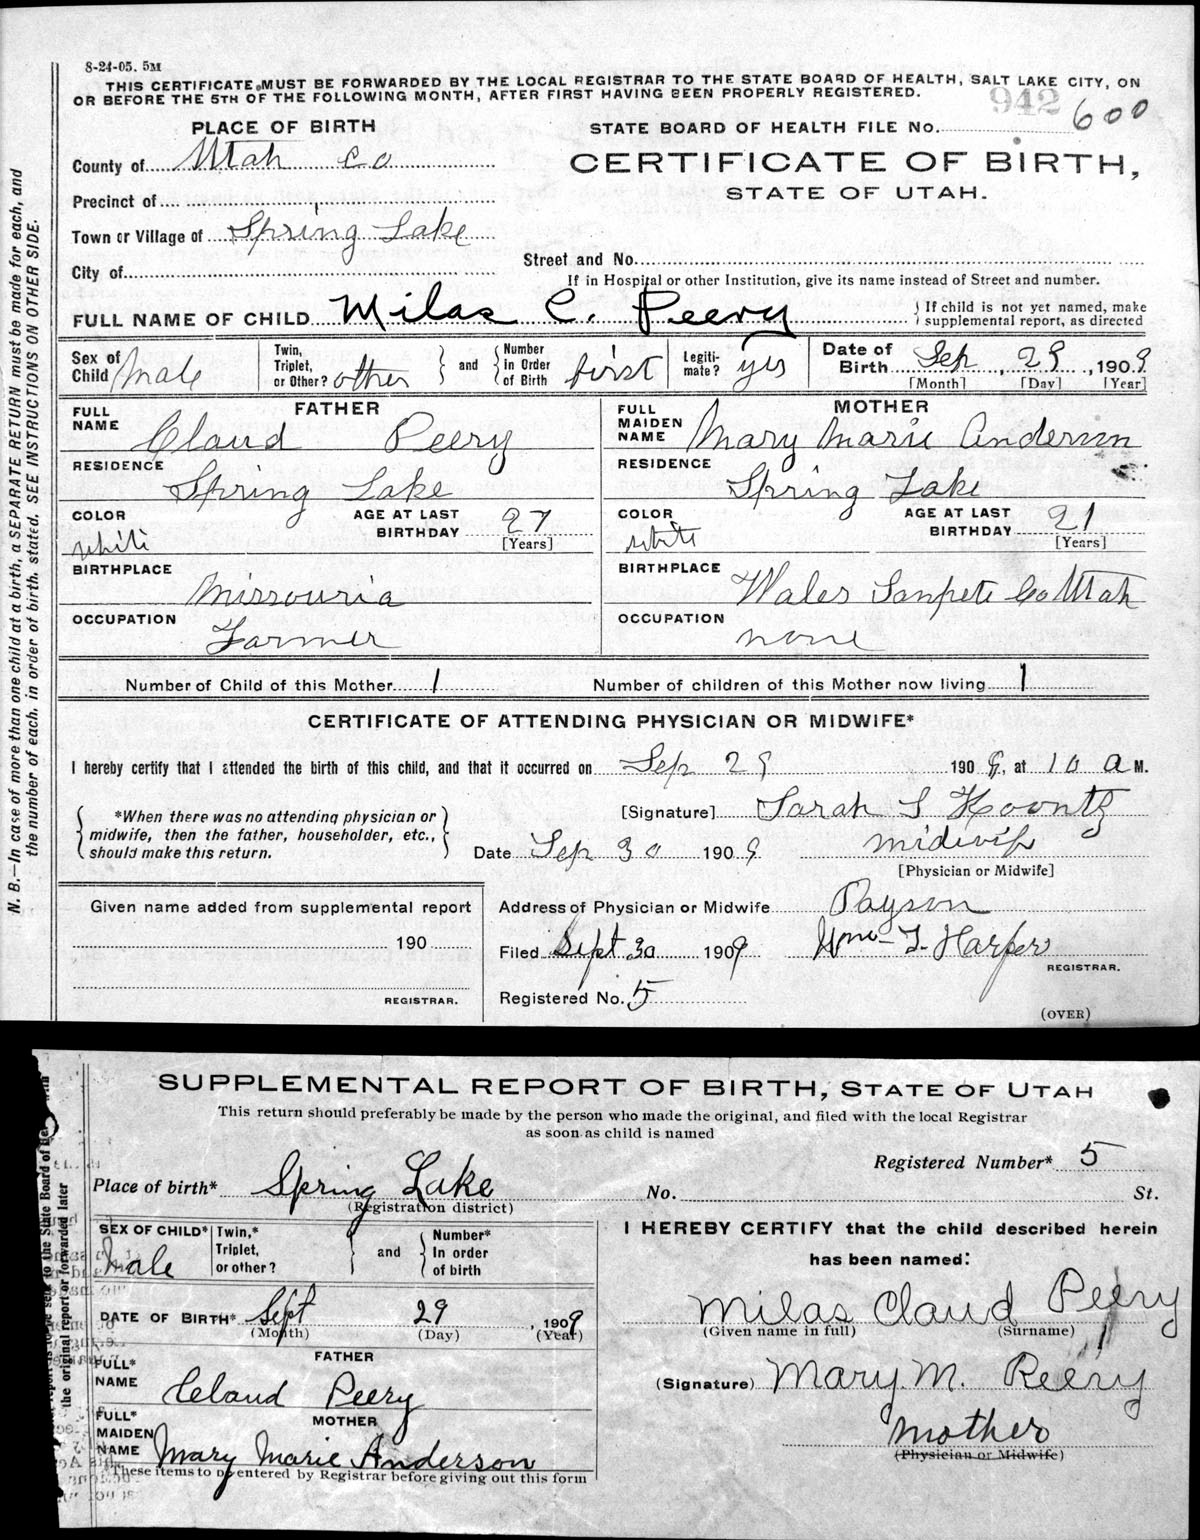 8-24-05. 5M
THIS CERTIFICATE MUST BE FORWARDED BY THE LOCAL REGISTRAR TO THE STATE BOARD OF HEALTH, SALT LAKE CITY, ON
OR BEFORE THE 5TH OF THE FOLLOWING MONTH, AFTER FIRST HAVING BEEN PROPERLY REGISTERED.
942 600
PLACE OF BIRTH
STATE BOARD OF HEALTH FILE No.
County of Utah Co
CERTIFICATE OF BIRTH,
STATE OF UTAH.
Precinct of
Town or Village of Spring Lake
City of
Street and No.
If in Hospital or other Institution, give its name instead of Street and number.
FULL NAME OF CHILD Milas C. Peery
If child is not yet named, make
supplemental report, as directed
Sex of Child Male
Twin, Triplet, or Other? other
and
Number in Order of Birth first
Legiti-mate? yes
Date of Birth Sep, 29, 1909
[Month] [Day] [Year]
FATHER
FULL NAME Claud Peery
RESIDENCE Spring Lake
COLOR white
AGE AT LAST BIRTHDAY 27
[Years]
BIRTHPLACE Missouria
OCCUPATION Farmer
MOTHER
FULL MAIDEN NAME Mary Marie Anderson
RESIDENCE Spring Lake
COLOR white
AGE AT LAST BIRTHDAY 21
[Years]
BIRTHPLACE Wales Sanpete Co Utah
OCCUPATION none
Number of Child of this Mother 1
Number of children of this Mother now living 1
CERTIFICATE OF ATTENDING PHYSICIAN OR MIDWIFE*
I hereby certify that I attended the birth of this child, and that it occurred on Sep 29 1909, at 10 a M.
*When there was no attending physician or
midwife, then the father, householder, etc.,
should make this return.
[Signature] Sarah S Koontz
Date Sep 30 1909
midwife
[Physician or Midwife]
Given name added from supplemental report
190
REGISTRAR.
Address of Physician or Midwife Payson
Filed Sept 30 1909 Wm. T. Harper
REGISTRAR.
Registered No. 5
(OVER)
N. B.—In case of more than one child at a birth, a SEPARATE RETURN must be made for each, and
the number of each, in order of birth, stated. SEE INSTRUCTIONS ON OTHER SIDE.
SUPPLEMENTAL REPORT OF BIRTH, STATE OF UTAH
This return should preferably be made by the person who made the original, and filed with the local Registrar
as soon as child is named
Registered Number* 5
Place of birth* Spring Lake
(Registration district)
No. St.
SEX OF CHILD* Male
Twin,* Triplet, or other?
and
Number* In order of birth
DATE OF BIRTH* Sept 29, 1909
(Month) (Day) (Year)
FATHER
FULL* NAME Cloud Peery
MOTHER
FULL* MAIDEN NAME Mary Marie Anderson
*These items to be entered by Registrar before giving out this form
I HEREBY CERTIFY that the child described herein
has been named:
Milas Claud Peery
(Given name in full) (Surname)
(Signature) Mary M. Peery
Mother
(Physician or Midwife)
the original report or forwarded later